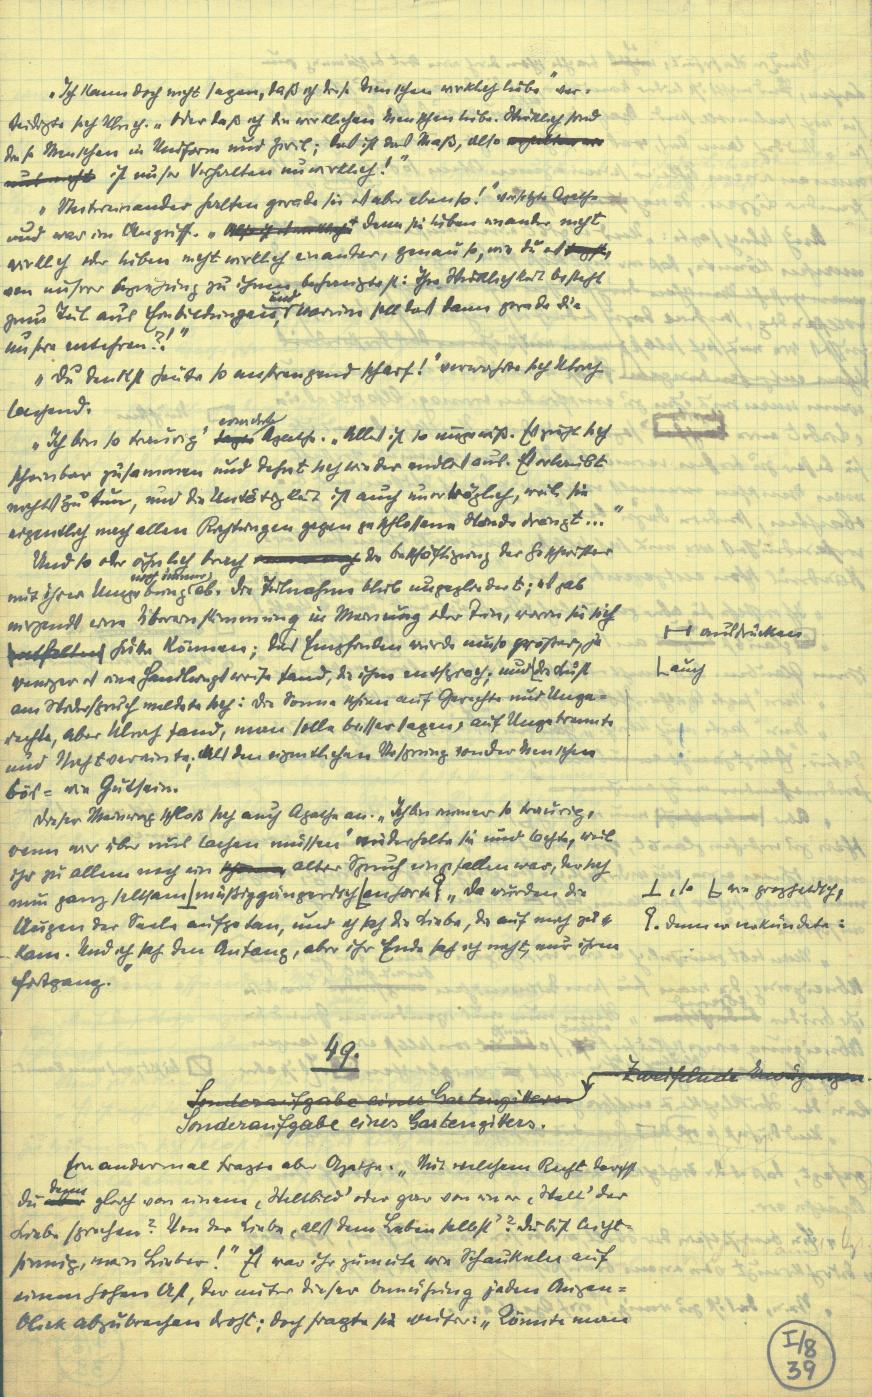 „Ich kann doch nicht sagen, daß ich diese Menschen wirklich liebe" ver-
teidigte sich Ulrich. „Oder daß ich die wirklichen Menschen liebe. Wirklich sind
diese Menschen in Uniform und Zivil; das ist das Maß, also
ist unser Verhalten unwirklich!"
„Untereinander halten gerade sie es aber ebenso!" versetzte Agathe
und war im Angriff. „ denn sie lieben einander nicht
wirklich oder lieben nicht wirklich einander, genau so, wie du es
von unserer Beziehung zu ihnen behauptest: Ihre Wirklichkeit besteht
zum Teil aus Einbildungen, und warum soll das dann gerade die
unsre entehren?!"
„Du denkst heute so anstrengend scharf!" verwahrte sich Ulrich
lachend.
„Ich bin so traurig" erwiderte Agathe. „Alles ist so ungewiß. Es zieht sich
scheinbar zusammen und dehnt sich wieder endlos aus. Es erlaubt
nichts zu tun, und die Untätigkeit ist auch unerträglich, weil sie
eigentlich nach allen Richtungen gegen geschlossene Wände drängt..."
Und so oder ähnlich brach die Beschäftigung der Geschwister
mit ihrer Umgebung noch immer ab. Die Teilnahme blieb ungegliedert; es gab
nirgends eine Übereinstimmung in Meinung oder Tun, worin sie sich
hätte können; das Empfinden wurde umso größer, je
weniger es eine Handlungsweise fand, die ihm entsprach, und die Lust
am Widerspruch meldete sich: die Sonne schien auf Gerechte und Unge-
rechte, aber Ulrich fand, man solle besser sagen, auf Ungetrennte
und Nichtvereinte; als den eigentlichen Ursprung von der Menschen
bös= wie Gutsein.
Dieser Meinung schloß sich auch Agathe an. „Ich bin immer so traurig,
wenn wir über uns lachen müssen" wiederholte sie und lachte, weil
ihr zu allem noch ein alter Spruch eingefallen war, der sich
nun ganz seltsam müßiggängerisch anhörte „Da wurden die
Augen der Seele aufgetan, und ich sah die Liebe, die auf mich zu
kam. Und ich sah den Anfang, aber ihr Ende sah ich nicht, nur ihren
Fortgang."
ausdrücken
auch
!
, so wie prophetisch,
denn er verkündete:
49.
Zweifelnde Erwägungen.
Sonderaufgabe eines Gartengitters
Sonderaufgabe eines Gartengitters.
Ein andermal fragte aber Agathe. „Mit welchem Recht darfst
du gleich von einem ‚Weltbild' oder gar von einer ‚Welt' der
Liebe sprechen? Von der Liebe ‚als dem Leben selbst'? Du bist leicht=
sinnig, mein Lieber!" Es war ihr zumute wie Schaukeln auf
einem hohen Ast, der unter dieser Bemühung jeden Augen=
blick abzubrechen droht; doch fragte sie weiter: „Könnte man
I/8
39